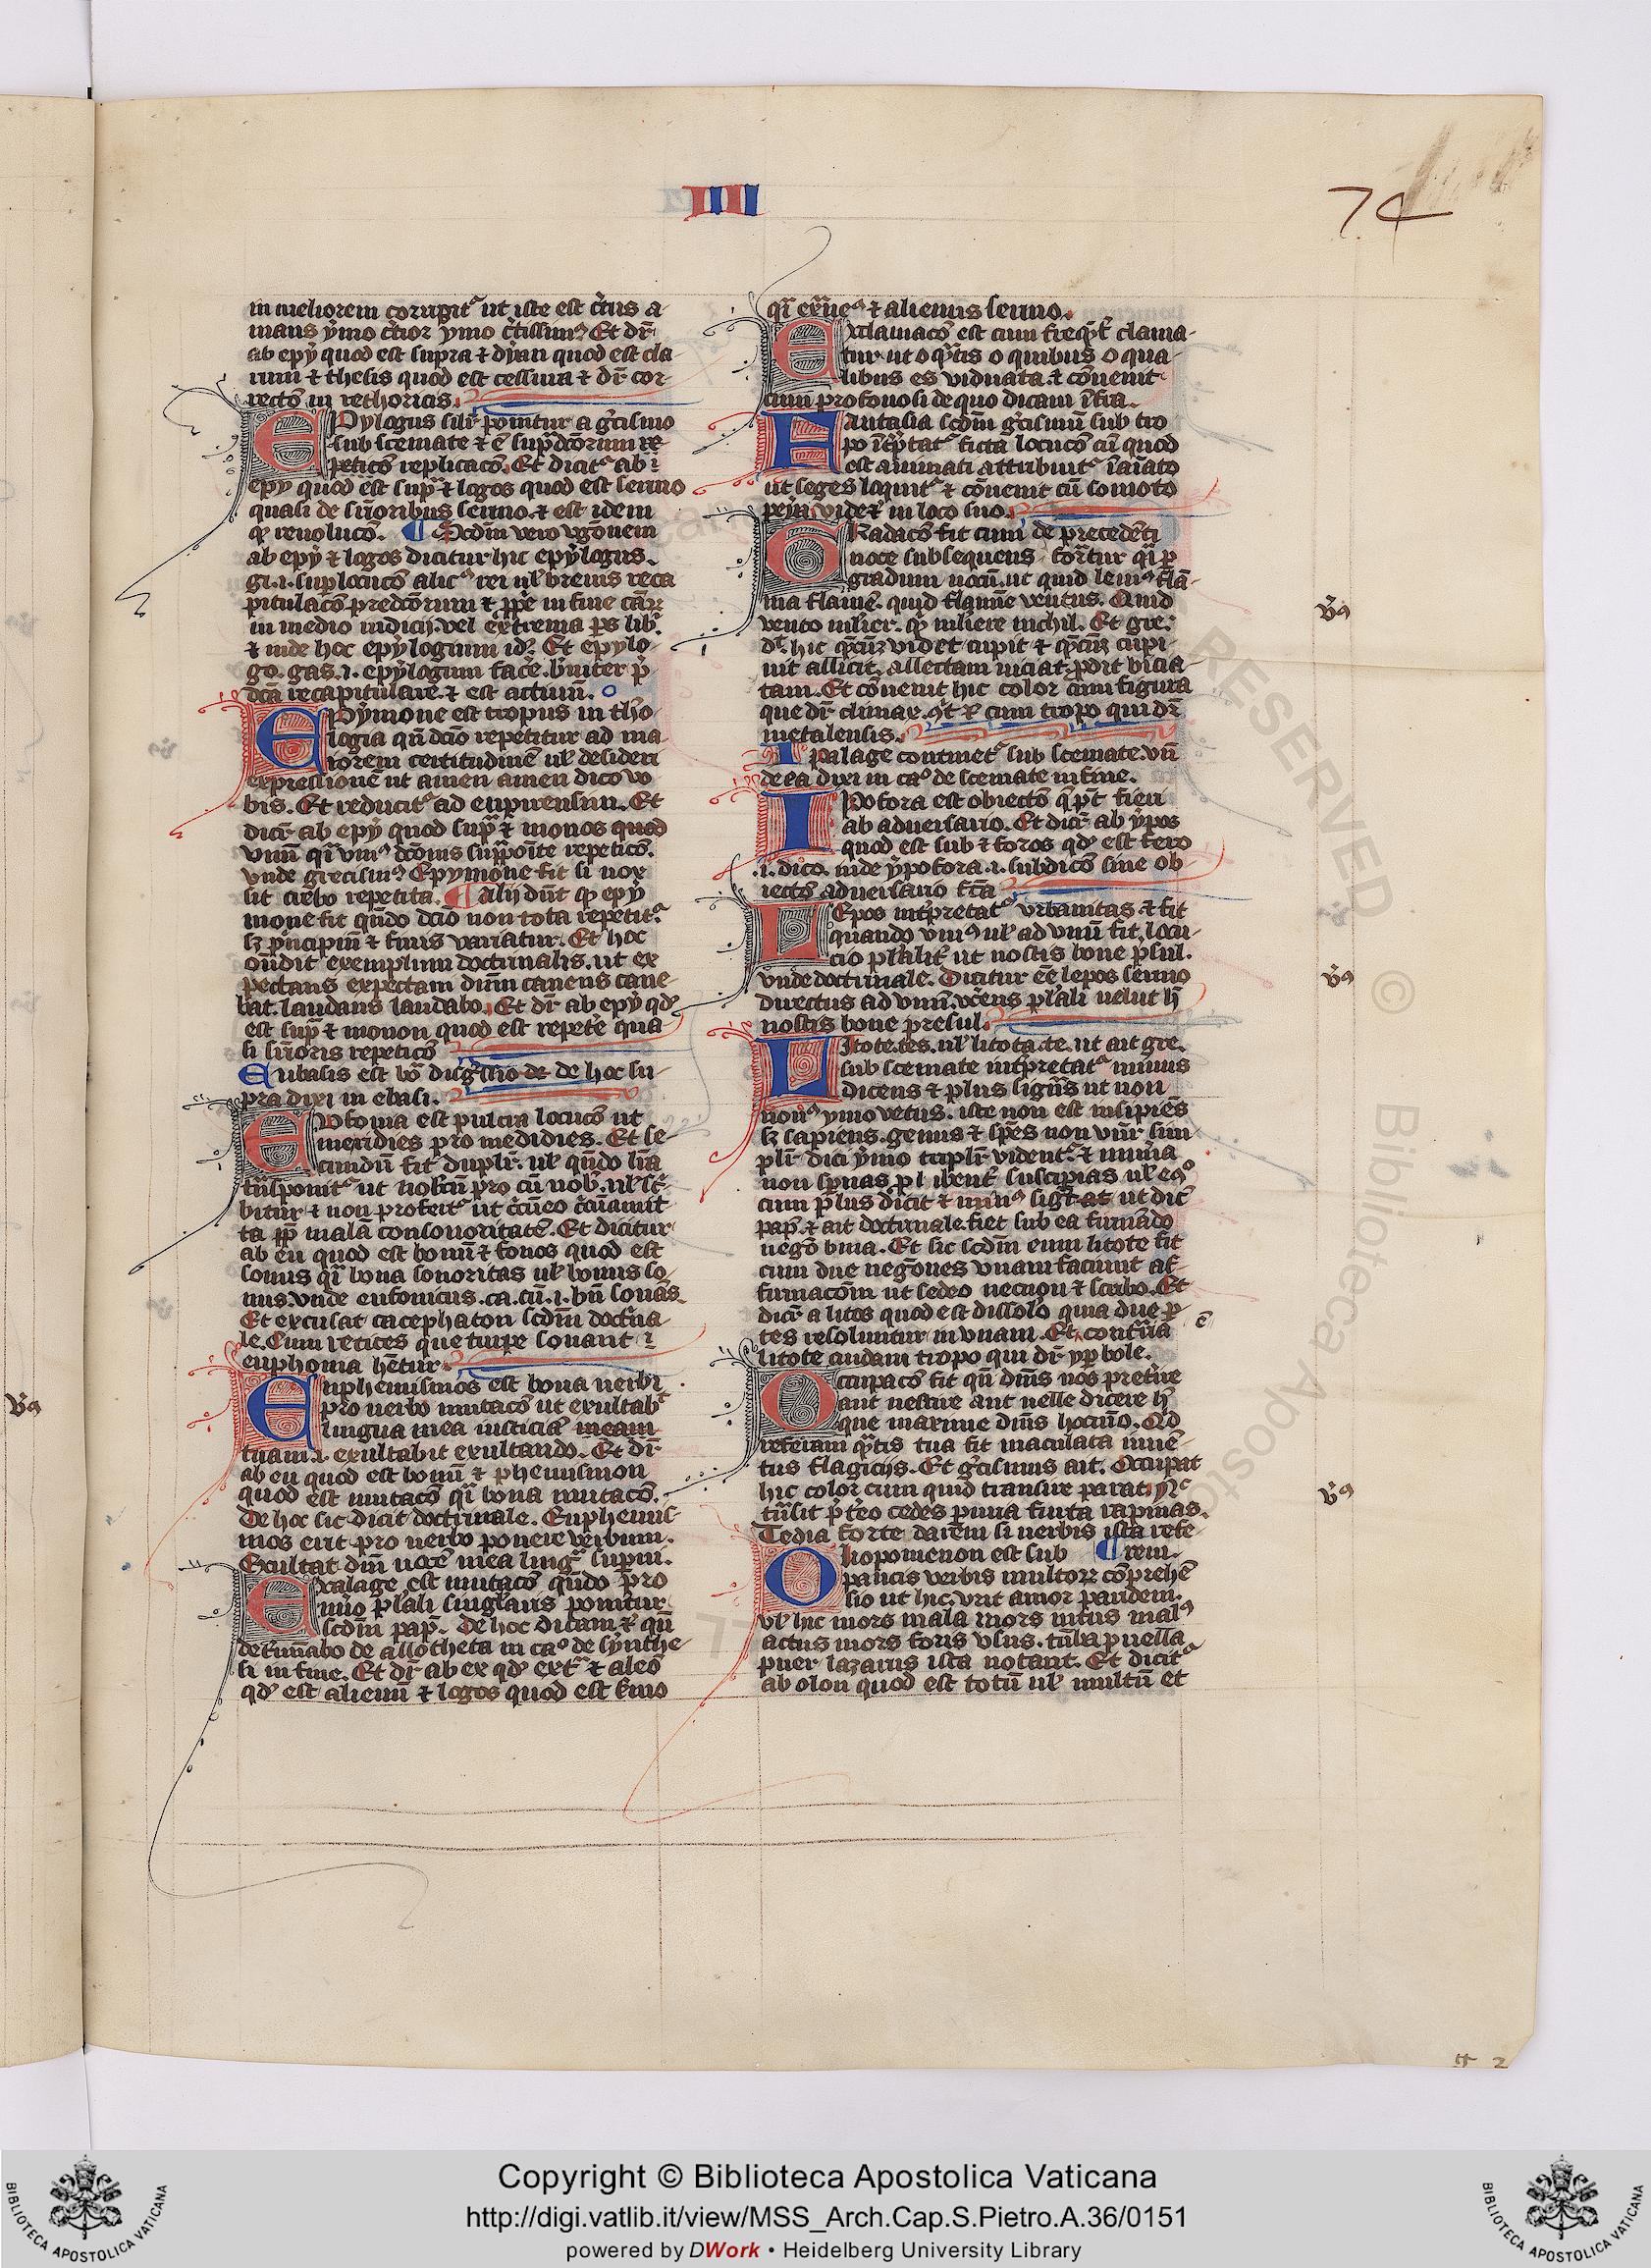 IIII
74
in meliorem corrigit᷑ ut iste est c̃tus a-
mans ẏmo c̃tior ymo c̃tissimꝰ Et dr̃
ab epẏ quod est supra ⁊ dẏan quod est cla-
rum ⁊ thesis quod est ⁊ dr̃ cor-
rectõ in rethoricis.
EPylogus silr̃ ponitur a grecismo
sub scemate ⁊ ẽ sup̃dc̃orum re-
peticõ replicacõ. Et dicit᷑ ab
epy quod est sup̃ ⁊ logos quod est sermo
quasi de su᷑ioribus sermo. ⁊ est idem
qr̃ reuolucõ. ¶ Scdm̃ vero vgõnem
ab epẏ ⁊ logos dicitur hic epẏlogus.
gi .i. suplocucõ alicꝰ rei ul̃ breuis reca
pitulacõ predcõrum ⁊ ꝓpe in fine cãꝝ
in medio iudicij. vel extrema ps̃ lib᷑.
⁊ inde hoc epẏlogium idꝫ Et epẏlo-
go. gas .i. epẏlogum facẽ. br̃uiter p̃
dcã recapitulare. ⁊ est actiuũ.
EPẏmone est tropus in theo-
logia qñ dcĩo repetitur ad ma-
iorem certitudinẽ ul̃ desiderij
expressionẽ ut amen amen dico vo
bis. Et reducit᷑ ad
dicr̃ ab epẏ quod sup̃ ⁊ monos quod
vnũ qr̃ vniꝰ dcõnis repeticõ.
vnde grecismꝰ Epymone fit si uox
sit crebro repetita. ¶ Alij dñt ꝙ epẏ
mone fit qñdo dcĩo non tota repetit᷑
sꝫ p̃ncipiũ ⁊ finis variatur. Et hoc
oñdit exemplum doctrinalis. ut ex
pectans expectam dñm canens cane-
bat. laudans laudabo. Et dr̃ ab epẏ qd̾
est sup̃ ⁊ monon quod est repetẽ qua-
si su᷑ioris repeticõ
Eubasis est bõ digr̃ssio de hoc su-
pra dixi in ebasi.
EUfonia est pulcra locucõ ut
meridies pro medidies. Et se-
cundũ fit duplr̃. ul̃ qñdo lr̃a
trãsponit᷑ ut nobcũ pro cũ nob᷑. ul̃ scr̃
bitur ⁊ non profert᷑ ut
ta ꝓp̃ malã consonoritatẽ. Et dicitur
ab eu quod est bonũ ⁊ fonos quod est
sonus qr̃ bona sonoritas ul̃ bonus so
nus. vnde eufonicus. ca. cũ .i. bñ sonãs.
Et excusat cacephaton scdm̃ doctrina
le. Cum retices que turpe sonant
euphonia hẽtur.
EUphemismos est bona uerbi
pro uerbo mutacõ ut exultab᷑
lingua mea iusticiã meam
tuam .i. exultabit exultando. Et dr̃
ab eu quod est bonũ ⁊ phemismon
quod est mutacõ qr̃ bona mutacõ.
De hoc sic dicit doctrinale. Euphemis-
mos erit pro uerbo ponere verbum.
Exultat dñm uocẽ mea ling̃ supni.
EXalage est mutacõ qñdo pro
nũo plr̃ali singlaris ponitur
scdm̃ pap̃. De hoc dicam ⁊ qñ
de allotheta in caᵒ de sẏnthe-
si in fine. Et dr̃ ab ex qd̾ extᵃ ⁊ aleõ
qd̾ est alienũ ⁊ logos quod est sermo
qr̃ extr̃neꝰ ⁊ alienus sermo.
EXclamacõ est cum freqñt᷑ clama-
tur ut o qr̃tis o quibus o qua-
libus es viduata. ⁊ cõuenit
cum profonosi de quo dicam ĩfra.
FAntasia scdm̃ gr̃cismũ sub tro
po ĩt̾p̃tat᷑ ficta locucõ cũ quod
est animati attribuit᷑ ĩaĩato
ut seges loquit᷑ ⁊ cõuenit cũ somoto
peẏa vide ⁊ in loco suo.
GRadacõ fit cum de precedẽti
uoce subsequens for̃tur qr̃ ꝑ
gradum uocũ. ut quid leuiꝰ flã-
ma flamẽ. quid flamine ventus. Quid
vento mlier. quid muliere nichil. Et gre.
dt᷑ hic videt cupit ⁊ cupi-
uit allicit. allectam uiciat. uicia-
tam. Et cõuenit hic color cum figura
que dr̃ climax. ⁊ cum tropo qui dr̃
metalensis.
IPalage continet᷑ sub scemate. vñ
de ea dixi in caᵒ de scemate in fine.
IPofora est obiectõ q̃ p̃t fieri
ab aduersario. Et dicr̃ ab ẏpos
quod est sub ⁊ foros qd̾ est fero
.i. dico. inde ẏpofora .i. subdicõ siue ob-
iectõ aduersario fcã
LEpos int̾pretat᷑ vrbanitas. ⁊ fit
quando vniꝰ ul̃ ad vnũ fit locu-
cio plr̃alit᷑ ut nostis bone pr̃sul.
vnde doctrinale. Dicitur eẽ lepos sermo
directus ad vnũ. vtẽs plr̃ali uelut h̃
nostis bone presul.
LItote. tes. ul̃ litota. te. ut ait gre.
sub scemate int̾pretat᷑ minus
dicens ⁊ plus ut non
nouꝰ ymo vetus. iste non est insipiẽs
sꝫ sapiens. genus ⁊ sp̃es non vnr̃ sim
plr̃ dici ẏmo triplr̃ vident᷑. ⁊ munia
non sp̃nas .p l ibent᷑ suscipias ul̃ eqᵒ
cum plus dicit ⁊ minꝰ ut dic᷑
pap̃. ⁊ ait doctrinale. fiet sub ea firmãdo
negõ bina. Et sic scdm̃ eum litote fit
cum due negõnes vnam faciunt af-
firmacõm ut sedeo necnon ⁊ scribo. Et
dicr̃ a litos quod est dissolo quia due ꝑ
tes resoluntur in vnam. Et contr̃ria
litote cuidam tropo qui dr̃ yꝑbole.
OCcupacõ fit qñ dims nos pretire
aut nescire aut uelle dicere h̃
que maxime dims Qd
referam qr̃tis tua sit maculata iuuẽ-
tus flagicijs. Et gr̃cismus ait. Occupat
hic color cum quid transire parat.
trãsit p̃t̾eo cedes periuria furta rapinas.
Tedia forte darem si uerbis ista refe-
OLiopomenon est sub ¶ rem.
paucis verbis multoꝝ cõprehẽ
sio ut hic. vrit amor paridem.
vl̃ hic mors mala mors intus malꝰ
actus mors foris vsus. tũba puella
puer lazarus ista notant. Et dicit᷑
ab olon quod est totũ ul̃ multũ et
RESERVED © Biblioteca Apostolica
Copyright © Biblioteca Apostolica Vaticana
http://digi.vatlib.it/view/MSS_Arch.Cap.S.Pietro.A.36/0151
powered by DWork • Heidelberg University Library
BIBLIOTECA APOSTOLICA VATICANA
BIBLIOTECA APOSTOLICA VATICANA